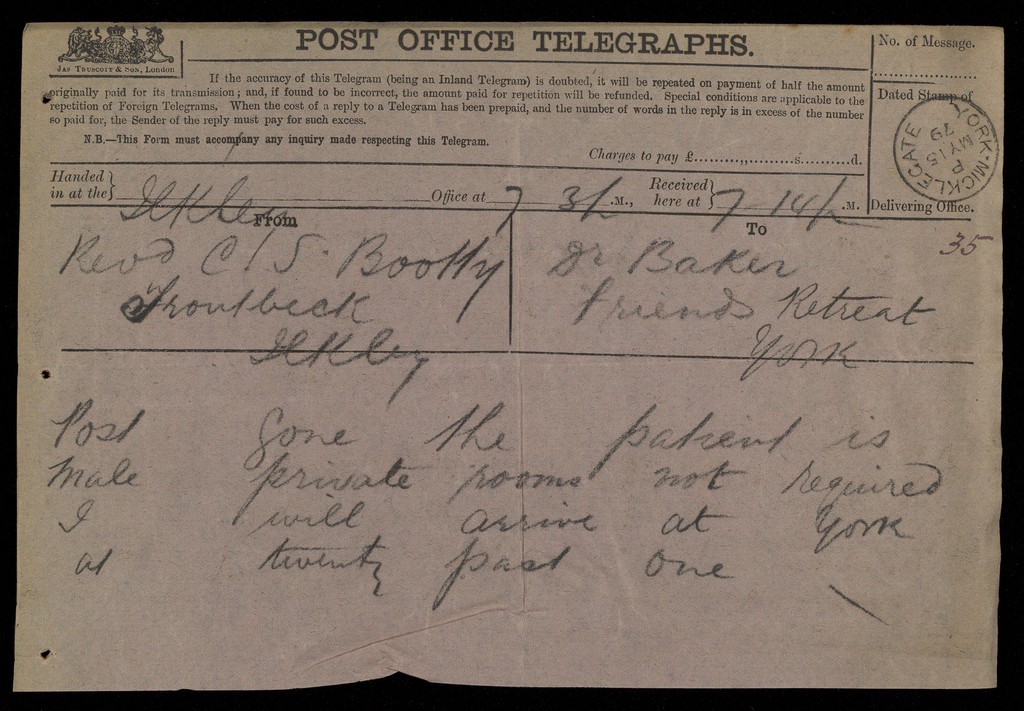 POST OFFICE TELEGRAPHS.
JAS TRUSCOTT & SON, London
If the accuracy of this Telegram (being an Inland Telegram) is doubted, it will be repeated on payment of half the amount
originally paid for its transmission; and, if found to be incorrect, the amount paid for repetition will be refunded. Special conditions are applicable to the
repetition of Foreign Telegrams. When the cost of a reply to a Telegram has been prepaid, and the number of words in the reply is in excess of the number
so paid for, the Sender of the reply must pay for such excess.
N.B.—This Form must accompany any inquiry made respecting this Telegram.
Charges to pay £..........,,..........s..........d.
No. of Message.
Dated Stamp of
YORK-MICKLEGATE
P
MY 15
79
Delivering Office.
Handed in at the Ilkley Office at 7 3/P .M., Received here at 7-14/P .M.
From
Revd C/S. Bootty
Troutbeck
Ilkley
To
35
Dr Baker
Friends Retreat
York
Post gone the patient is
male private rooms not required
I will arrive at York
at twenty past one